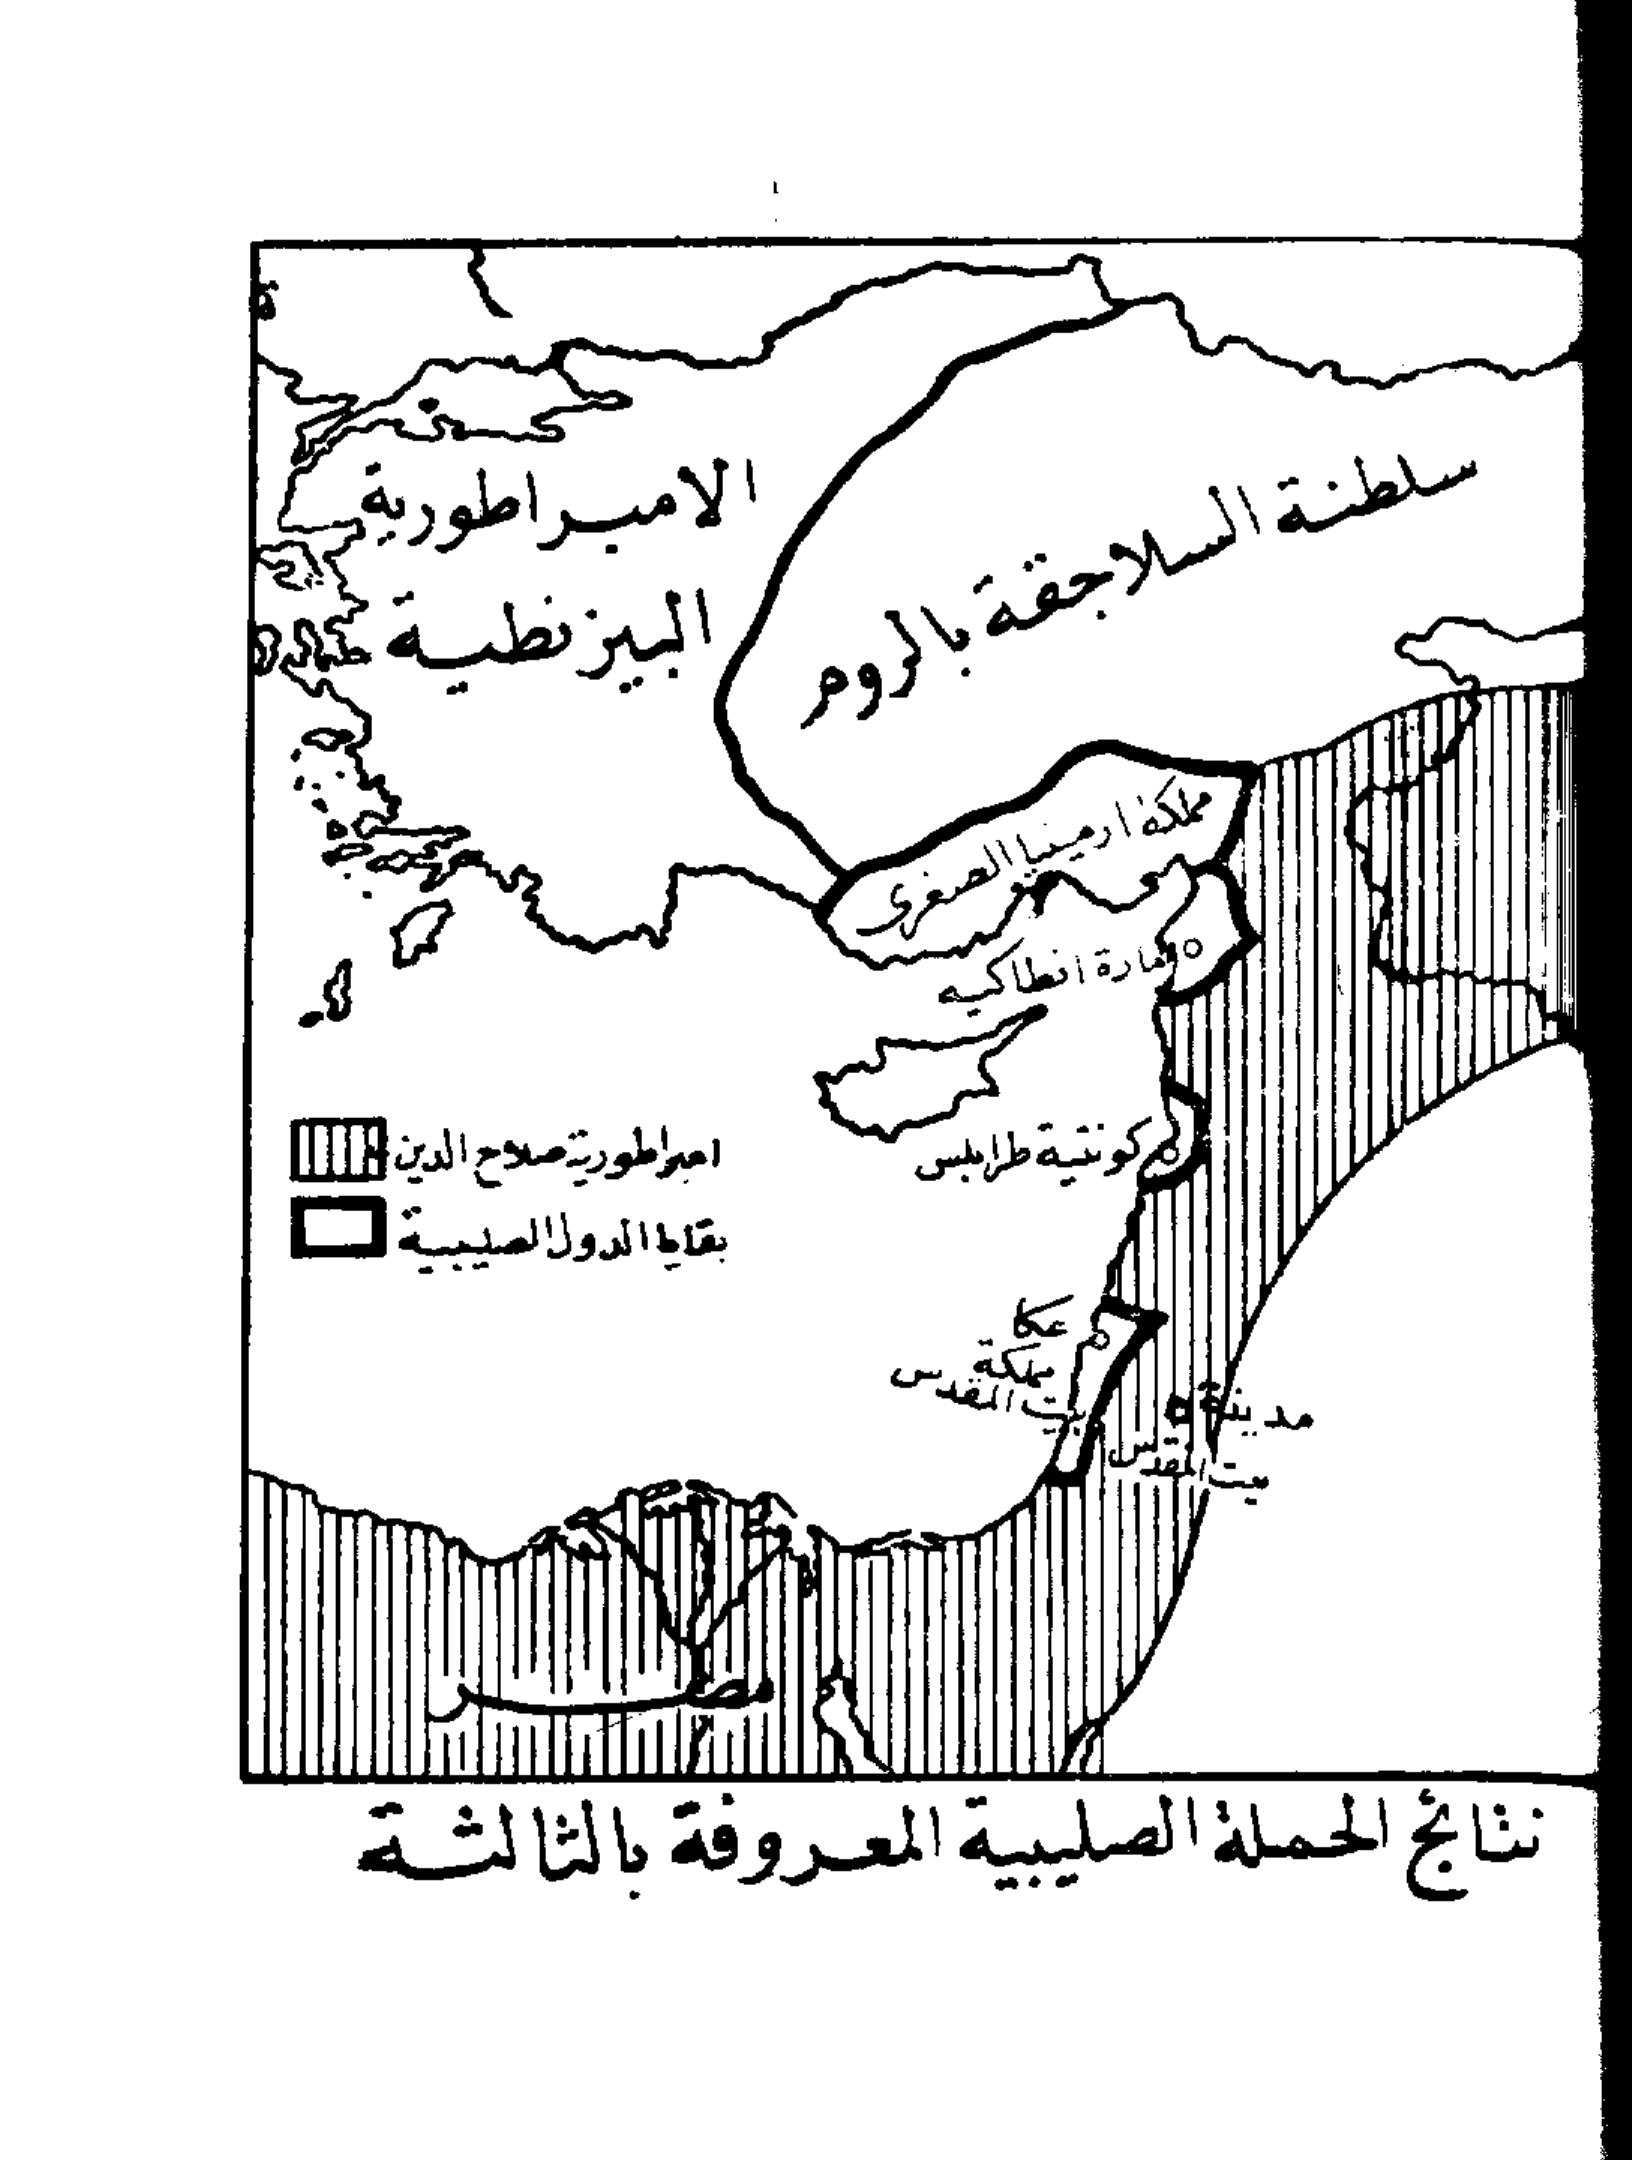 الامبراطورية
البيزنطية
سلطنة السلاجقة بالروم
مملكة ارمينيا الصغرى
امارة انطاكيه
كونتية طرابلس
امبراطورية صلاح الدين
بقايا الدول الصليبية
عكا
مملكة
بيت المقدس
مدينة
بيت المقدس
مصر
نتائج الحملة الصليبية المعروفة بالثالثة